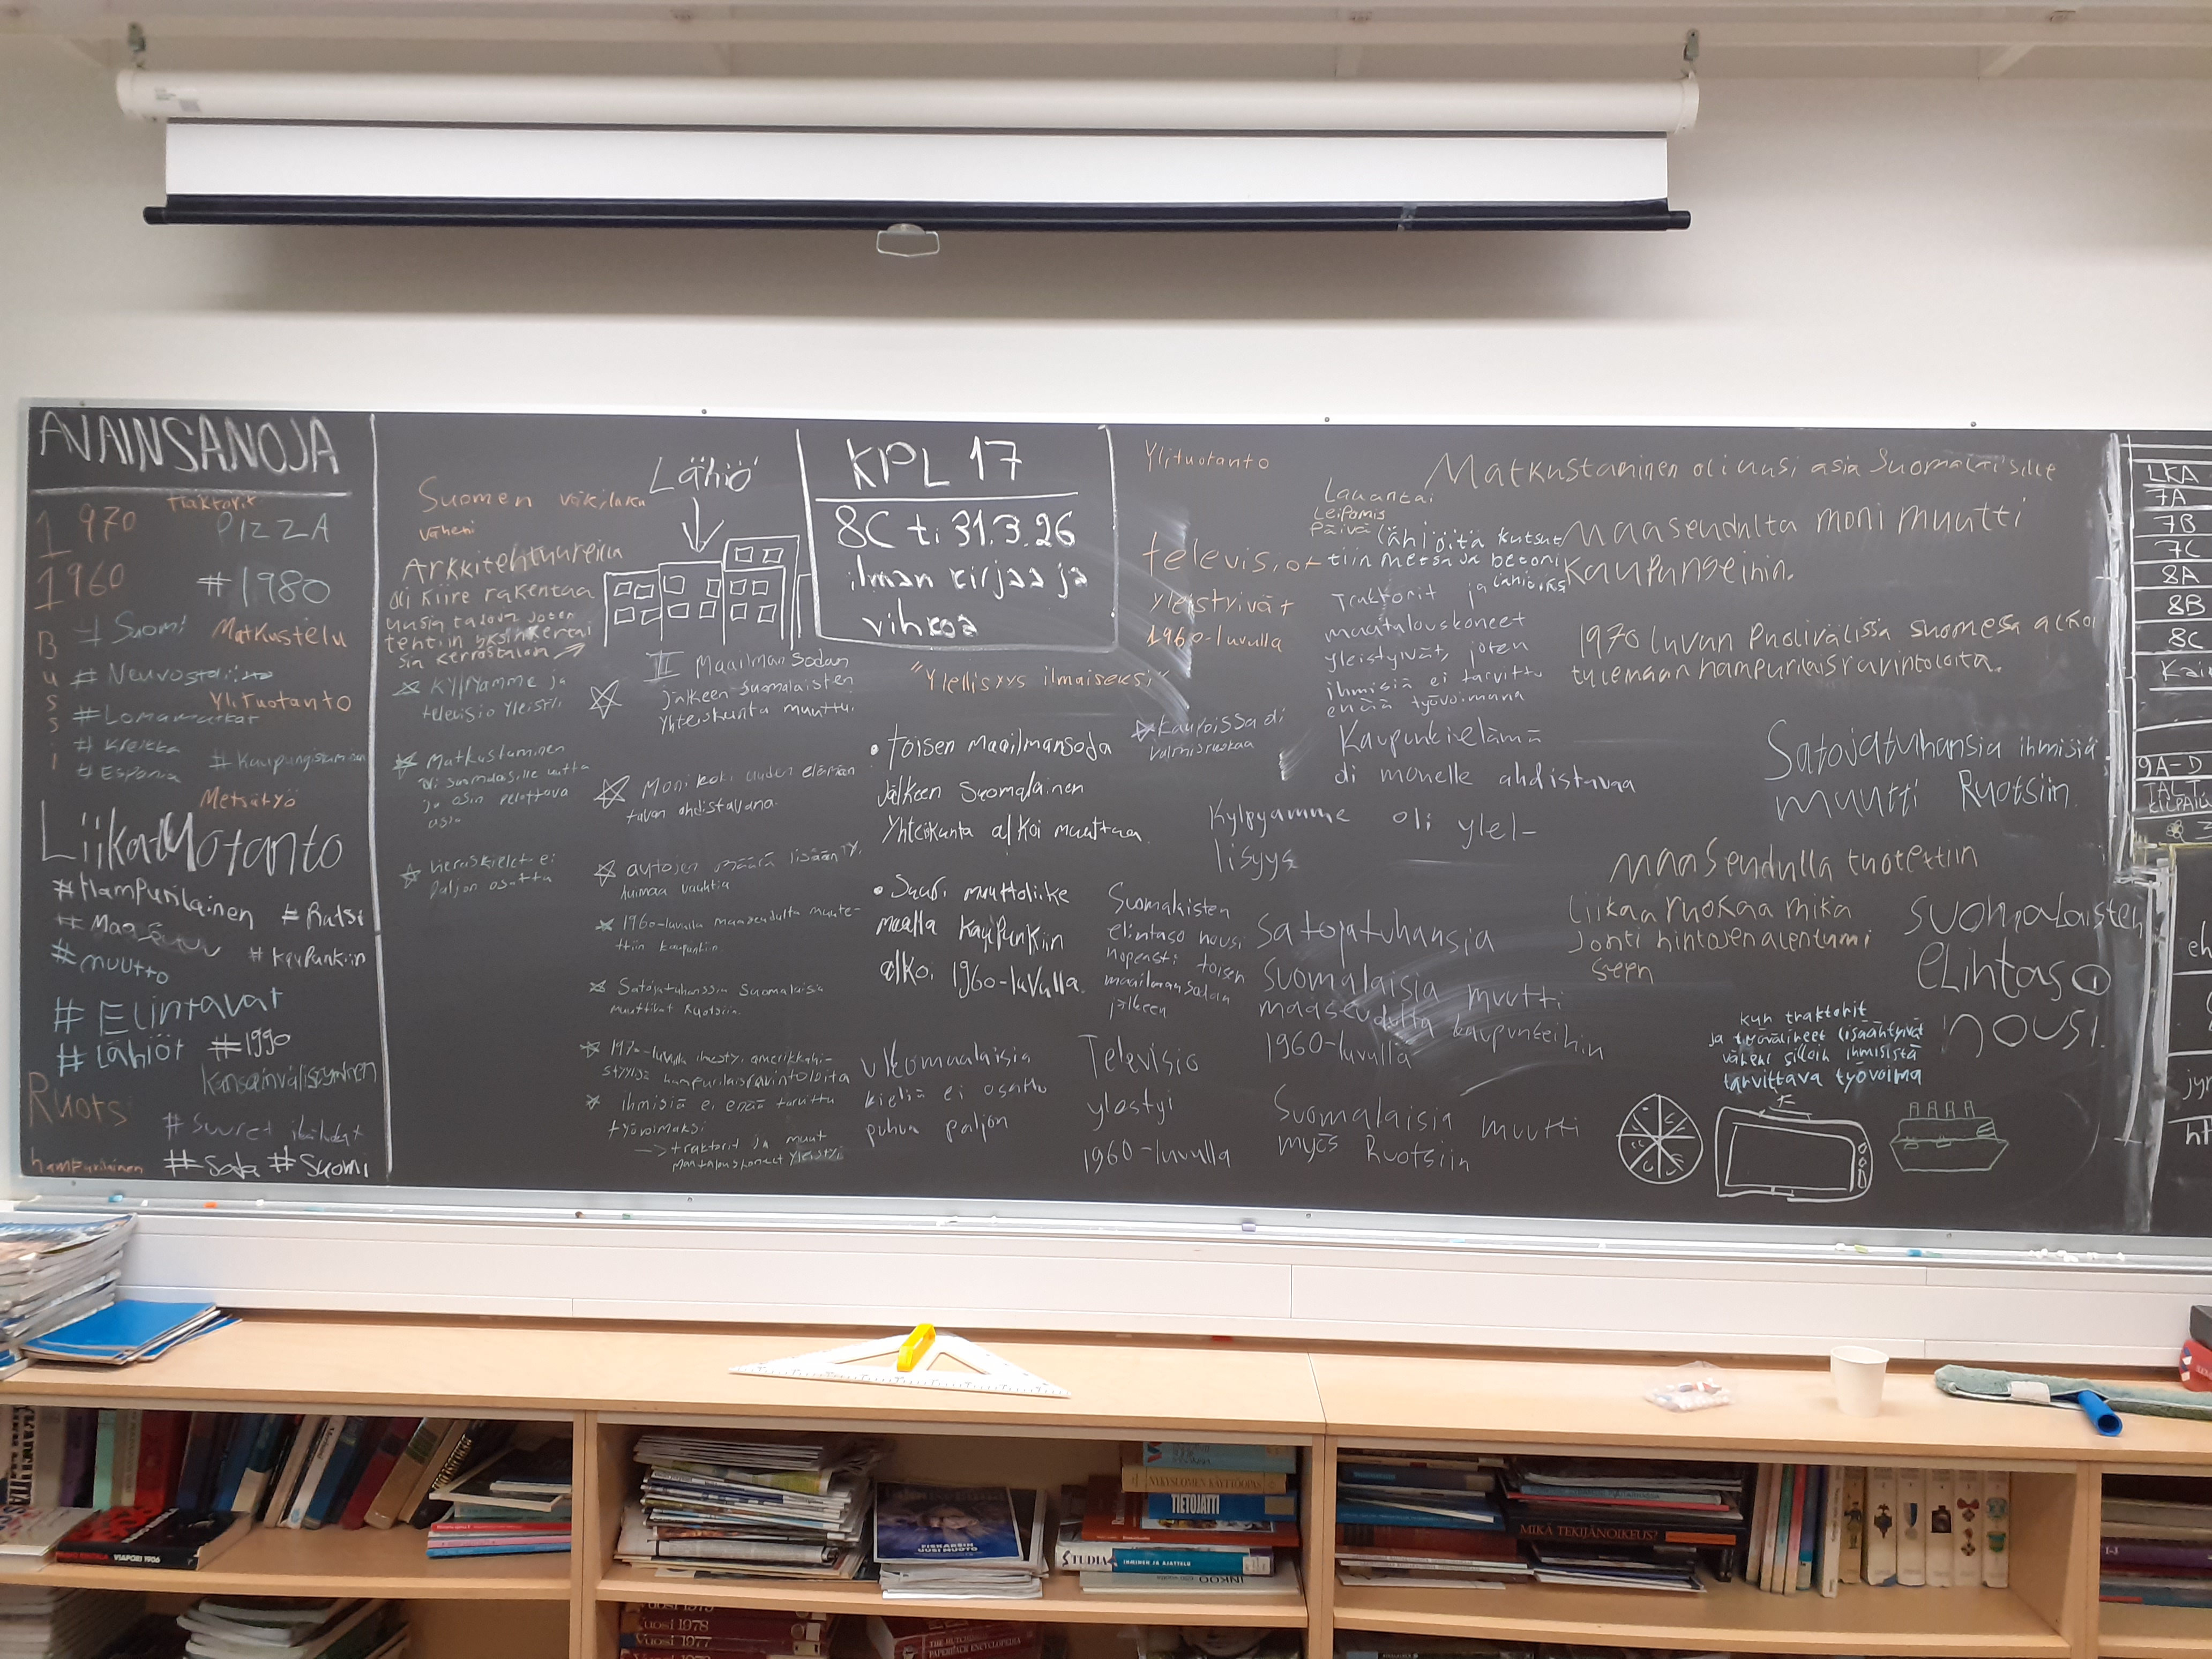 AVAINSANOJA
1970
Traktorit
PIZZA
1960
#1980
# Suomi
Matkustelu
Bussi
# Neuvostoliitto
Ylituotanto
# Lomamatkat
# Kreikka
# Kaupungistuminen
# Espanja
Metsätyö
Liikatuotanto
#Hampurilainen
# Ruotsi
# Maaseutu
# kaupunkiin
# muutto
# Elintavat
# Lähiöt
#1990
Kansainvälistyminen
Ruotsi
# Suuret ikäluokat
hampurilainen
# Sota # Suomi
Suomen väkiluku
väheni
Arkkitehtuureilla
oli kiire rakentaa
uusia taloja joten
tehtiin yksinkertai
sia kerrostaloja
Kylpyamme ja
televisio yleistyi
Matkustaminen
oli suomalaisille uutta
ja osin pelottava
asia
vieraskielet ei
paljon osattu
Lähiö
II Maailman sodan
jälkeen suomalaisten
yhteiskunta muuttui
Moni koki uuden elämän
tavan ahdistavana.
autojen määrä lisääntyi
huimaa vauhtia
1960-luvulla maaseudulta muute-
ttiin kaupunkiin
Satojatuhanssia Suomalaisia
muuttivat Ruotsiin.
1970-luvulla ilmestyi amerikkalai-
styylisiä hampurilaisravintoloita
ihmisiä ei enää tarvittu
työvoimaksi
traktorit ja muut
maatalouskoneet yleistyi
KPL 17
8C ti 31.3.26
ilman kirjaa ja
vihkoa
"Ylellisyys ilmaiseksi"
• toisen maailmansoda
jälkeen suomalainen
Yhteikunta alkoi muuttua
• Suuri muuttoliike
maalla kaupunkiin
alkoi 1960-luvulla.
ulkomaalaisia
kieliä ei osattu
puhua paljon
Ylituotanto
televisiot
yleistyivät
1960-luvulla
Kaupoissa oli
valmisruokaa
Kylpyamme oli ylel-
lisyys
Suomalaisten
elintaso nousi
nopeasti toisen
maailmansodan
jälkeen
Televisio
ylestyi
1960-luvulla
Lauantai
Leipomis
päivä
Lähiöitä kutsut
tiin metsä ja betoni
lähiöiksi
Traktorit ja
maatalouskoneet
yleistyivät, joten
ihmisiä ei tarvittu
enää työvoimana
Kaupunkielämä
oli monelle ahdistavaa
Satojatuhansia
Suomalaisia muutti
maaseudulta kaupunkeihin
1960-luvulla
Suomalaisia muutti
myös Ruotsiin
Matkustaminen oli uusi asia Suomalaisille
Maaseudulta moni muutti
kaupungeihin.
1970 luvun puolivälissä suomessa alkoi
tulemaan hampurilaisravintoloita.
Satojatuhansia ihmisiä
muutti Ruotsiin
Maaseudulla tuotettiin
liikaa ruokaa mikä
johti hintojen alentumi
seen
Suomalaisten
elintaso
nousi.
kun traktorit
ja työvälineet lisääntyivät
väheni silloin ihmisistä
tarvittava työvoima
LKA
7A
7B
7C
8A
8B
8C
9A-D
VIAPORI 1906
NYKYSUOMEN KÄYTTÖOPAS
TIETOJÄTTI
STUDIA
IHMINEN JA AJATTELU
INKOO
FISKARSIN
UUSI MUOTO
MIKÄ TEKIJÄNOIKEUS?
Vuosi 1978
Vuosi 1977